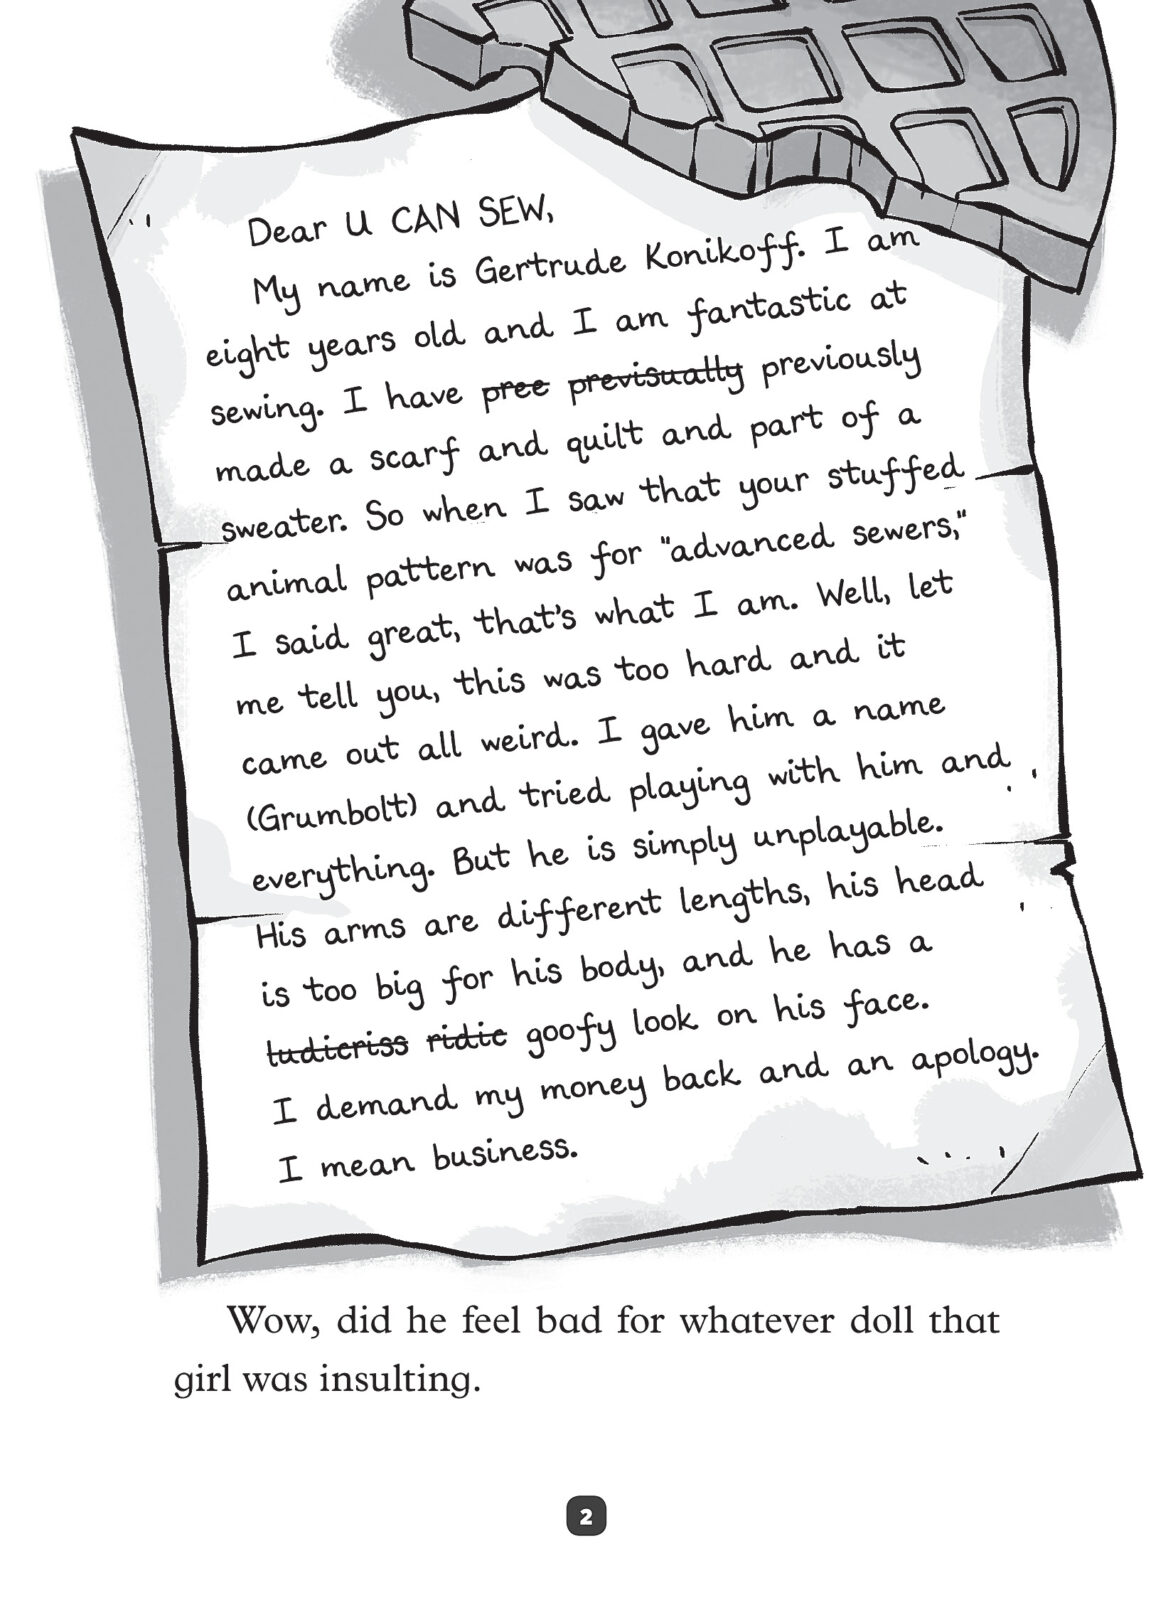 Dear U CAN SEW,
My name is Gertrude Konikoff. I am
eight years old and I am fantastic at
sewing. I have pree previsually previously
made a scarf and quilt and part of a
sweater. So when I saw that your stuffed
animal pattern was for "advanced sewers,"
I said great, that's what I am. Well, let
me tell you, this was too hard and it
came out all weird. I gave him a name
(Grumbolt) and tried playing with him and
everything. But he is simply unplayable.
His arms are different lengths, his head
is too big for his body, and he has a
ludicriss ridic goofy look on his face.
I demand my money back and an apology.
I mean business.
Wow, did he feel bad for whatever doll that
girl was insulting.
2